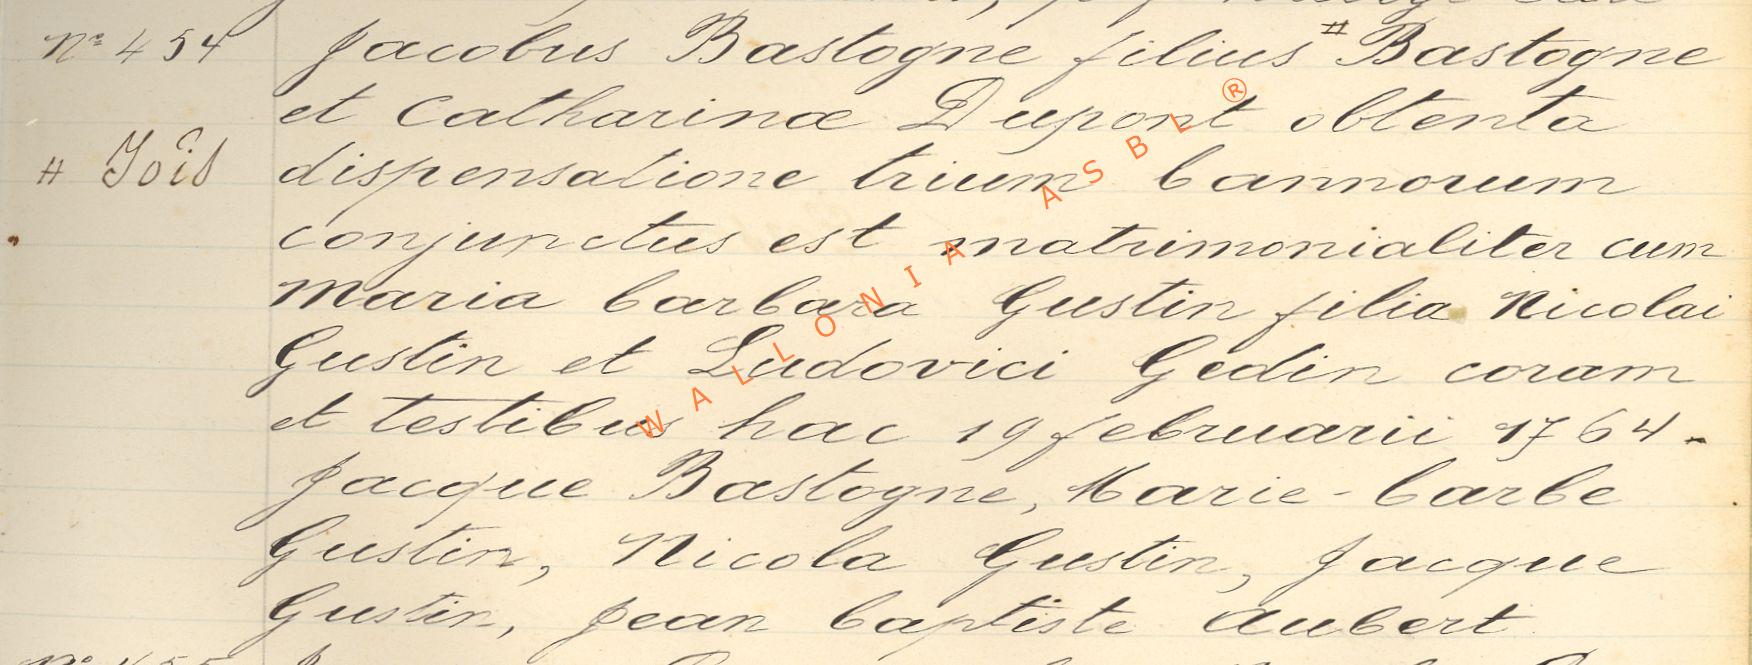 Nº 454 Jacobus Bastogne filius # Bastogne
et Catharinæ Dupont obtenta
# Jois dispensatione trium bannorum
conjunctus est matrimonialiter cum
Maria barbara Gustin filia Nicolai
Gustin et Ludovici Gedin coram
et testibus hac 19 februarii 1764.
Jacque Bastogne, Marie-barbe
Gustin, Nicola Gustin, Jacque
Gustin, Jean baptiste Aubert
Nº 455
WALLONIA ASBL ®